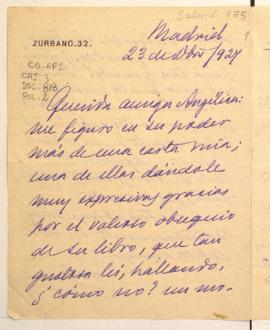 Salomé 175
1
ZURBANO. 32.
Madrid
23 de Dbre/927
CO-AP1
CAJ. 3
DOC. 818
FOL. 2
Querida amiga Angélica:
me figuro en su poder
más de una carta mía;
una de ellas dándole
muy expresivas gracias
por el valioso obsequio
de su libro, que tan
gustosa leí, hallando,
¿cómo no? un mo-